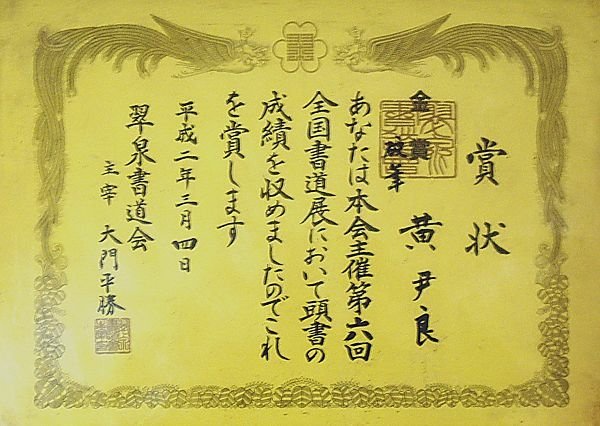 賞状
金賞
硬筆 黄尹良
あなたは本会主催第六回
全国書道展において頭書の
成績を収めましたのでこれ
を賞します
平成二年三月四日
翠泉書道会
主宰 大門平勝